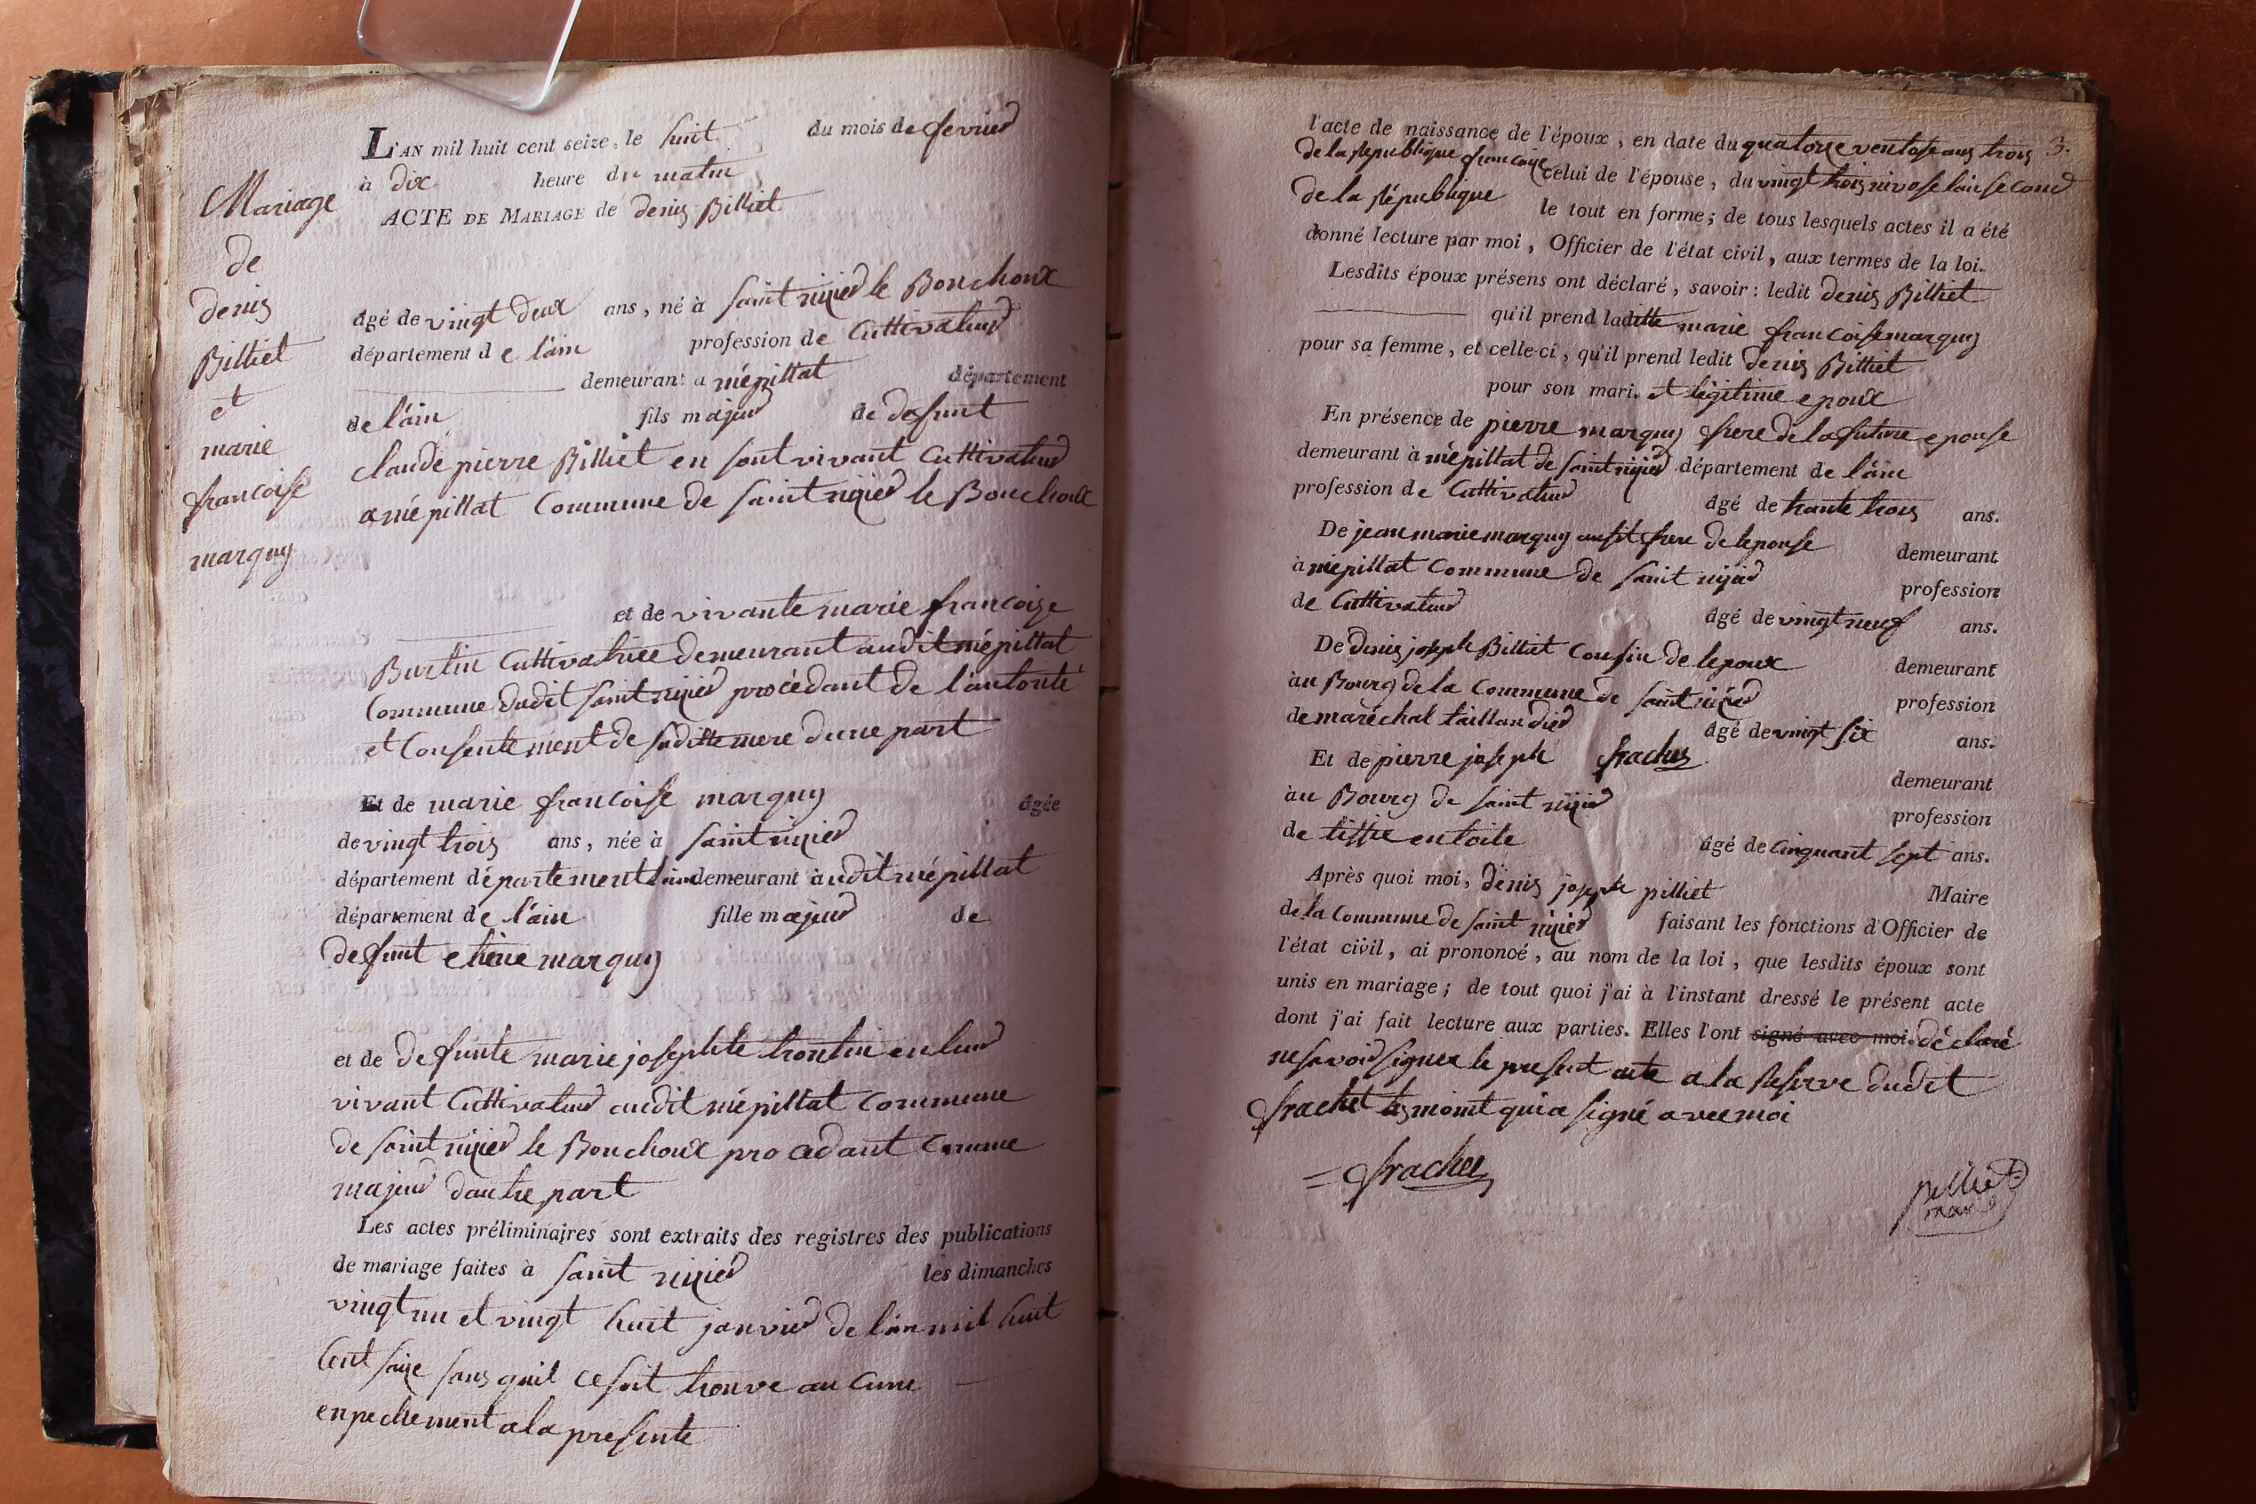 Mariage
de
denis
Billiet
et
marie
francoise
marquis
L'AN mil huit cent seize, le huit du mois de fevrier
à dix heure du matin
ACTE DE MARIAGE de denis Billiet
âgé de vingt deux ans, né à saint nizier le Bouchoux
département de l'ain profession de Cultivateur
demeurant a mépillat département
de l'ain fils majeur de defunt
claude pierre Billiet en sont vivant Cultivateur
a mépillat Commune de saint nizier le Bouchoux
et de vivante marie francoise
Burtin Cultivatrice demeurant audit mépillat
Commune dudit saint nizier procédant de l'autorité
et Consentement de saditte mere dune part
Et de marie francoise marquis âgée
de vingt trois ans, née à saint nizier
département département l'ain demeurant audit mépillat
département de l'ain fille majeur de
defunt etiene marquis
et de defunte marie josephte
vivant Cultivateur audit mépillat Commune
de saint nizier le Bouchoux procedant Comme
majeur dautre part
Les actes préliminaires sont extraits des registres des publications
de mariage faites à saint nizier les dimanches
vingt un et vingt huit janvier de l'an mil huit
Cent saize sans quil ce soit trouve au Cune
enpechement a la presente
l'acte de naissance de l'époux, en date du quatorze ventose ans trois 3.
de la republique francaise celui de l'épouse, du vingt trois nivose lan second
de la république le tout en forme; de tous lesquels actes il a été
donné lecture par moi, Officier de l'état civil, aux termes de la loi.
Lesdits époux présens ont déclaré, savoir: ledit denis Billiet
qu'il prend laditte marie francoise marquis
pour sa femme, et celle-ci, qu'il prend ledit denis Billiet
pour son mari. et légitime epoux
En présence de pierre marquis frere de la future epouse
demeurant à mépillat de saint nizier département de l'ain
profession de Cultivateur âgé de trante trois ans.
De jean marie marquis ausit frere de lepouse demeurant
à mépillat Commune de saint nizier profession
de Cultivateur âgé de vingt neuf ans.
De denis joseph Billiet Cousin de lepoux demeurant
au Bourg de la Commune de saint nizier profession
de maréchal taillandier âgé de vingt six ans.
Et de pierre joseph frachet demeurant
au Bourg de saint nizier profession
de tissie en toile âgé de Cinquant sept ans.
Après quoi moi, denis joseph pilliet Maire
de la Commune de saint nizier faisant les fonctions d'Officier de
l'état civil, ai prononcé, au nom de la loi, que lesdits époux sont
unis en mariage; de tout quoi j'ai à l'instant dressé le présent acte
dont j'ai fait lecture aux parties. Elles l'ont signé avec moi. déclaré
ne savoir signer le present acte a la Reserve dudit
frachet tesmoint qui a signé avec moi
= frachet
pilliet
maire